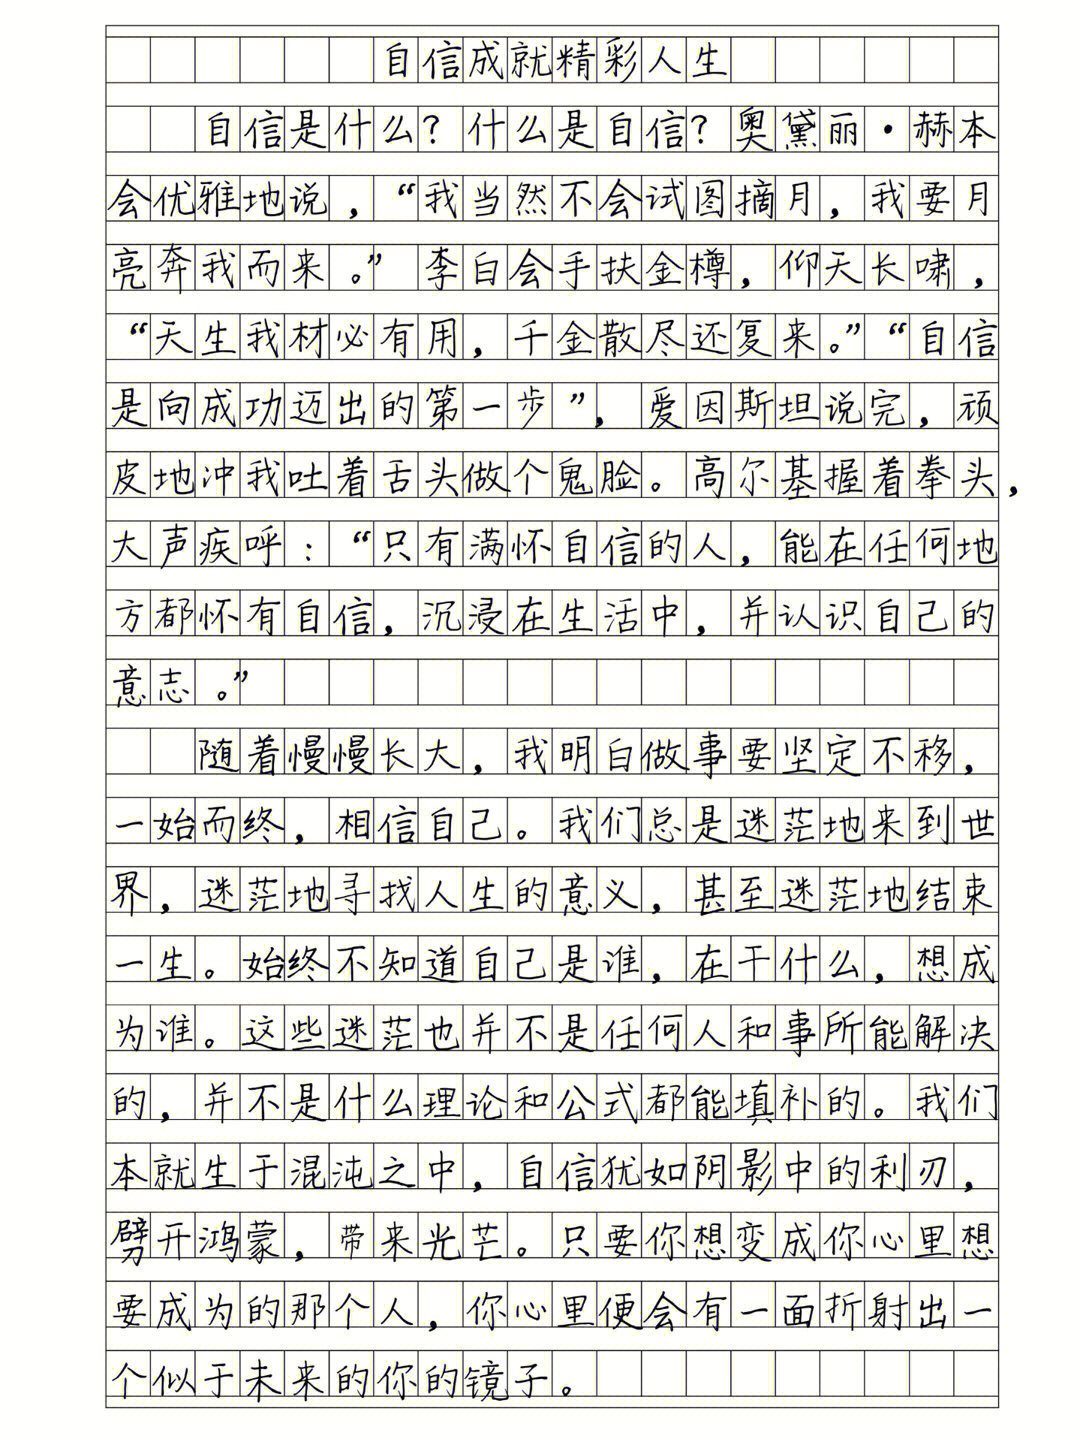 自信成就精彩人生
自信是什么？什么是自信？奥黛丽·赫本
会优雅地说，“我当然不会试图摘月，我要月
亮奔我而来。”李白会手扶金樽，仰天长啸，
“天生我材必有用，千金散尽还复来。”“自信
是向成功迈出的第一步”，爱因斯坦说完，顽
皮地冲我吐着舌头做个鬼脸。高尔基握着拳头，
大声疾呼：“只有满怀自信的人，能在任何地
方都怀有自信，沉浸在生活中，并认识自己的
意志。”
随着慢慢长大，我明白做事要坚定不移，
一始而终，相信自己。我们总是迷茫地来到世
界，迷茫地寻找人生的意义，甚至迷茫地结束
一生。始终不知道自己是谁，在干什么，想成
为谁。这些迷茫也并不是任何人和事所能解决
的，并不是什么理论和公式都能填补的。我们
本就生于混沌之中，自信犹如阴影中的利刃，
劈开鸿蒙，带来光芒。只要你想变成你心里想
要成为的那个人，你心里便会有一面折射出一
个似于未来的你的镜子。